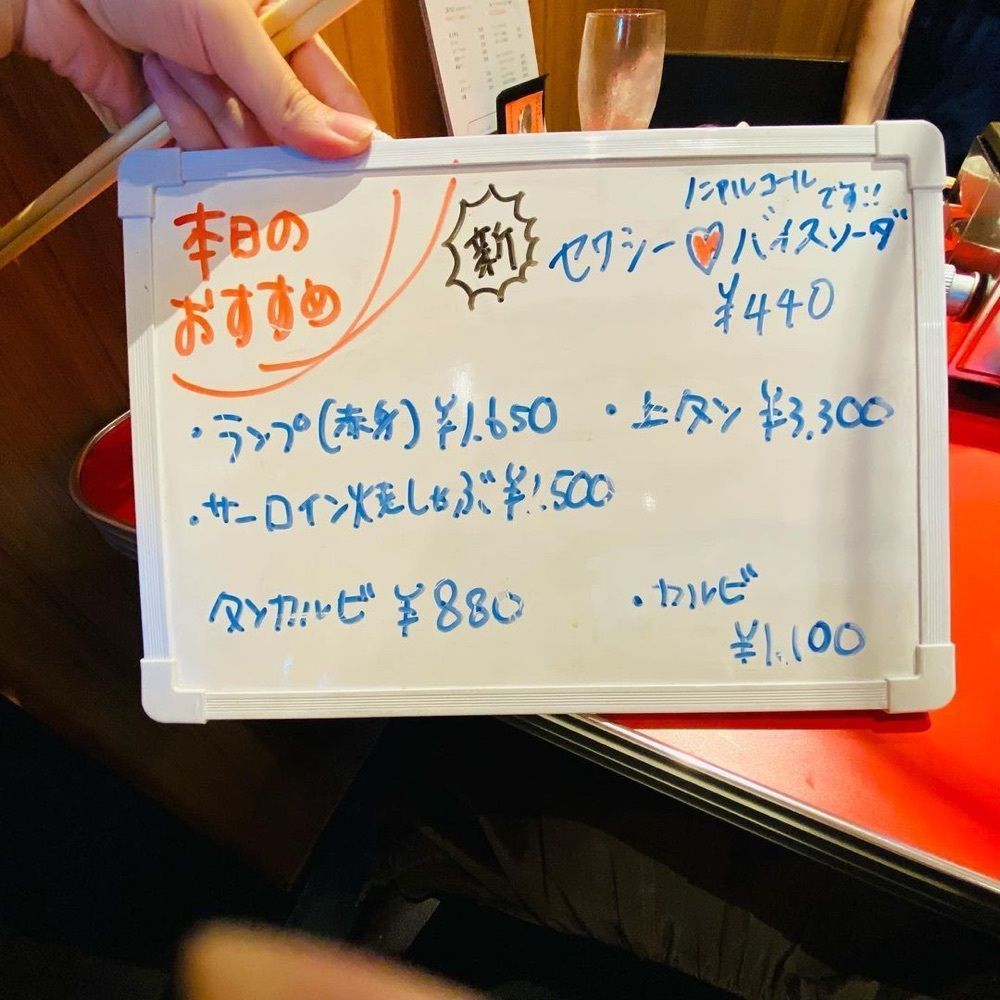 本日の
おすすめ
新
ノンアルコール
です!!
セクシー♡バイスソーダ
¥440
・ランプ(赤身)¥1,650
・上タン ¥3,300
・サーロイン焼しゃぶ¥1,500
タンカルビ ¥880
・カルビ
¥1,100